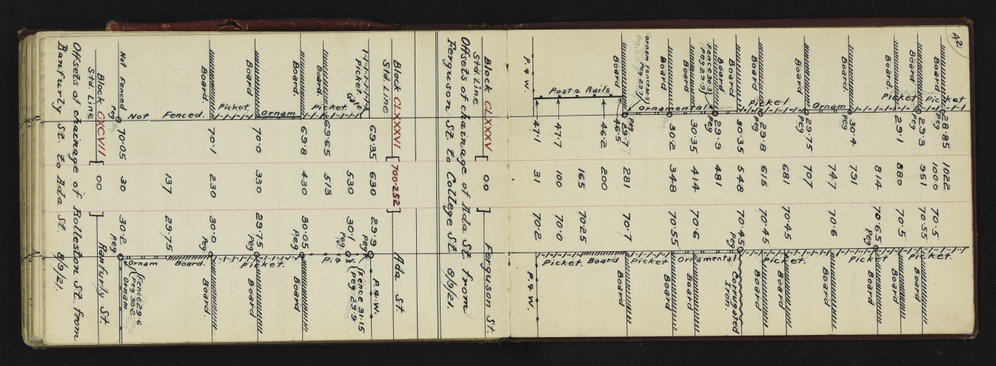 42
28·85 1022 70·5
Peg
Picket
Board 1000
29·3 961 70·55 Board
Picket
Board 29·1 880 70·5 Board
814 70·65 Picket
Peg
Board 30·4 791 Board
Peg
Ornam 747 70·6
Board 29·15 707 Picket
Peg
681 70·45 Board
Board 29·8 615 70·6 Board
Peg
Picket
Board 30·35 548 70·45 Corrugated Iron.
Peg
Board 29·9 481 Board
Peg
Ornamental
Board 30·35 414 70·6 Board
Ornamental
Board 30·2 348 70·55 Board
Picket
Board 29·7 281 70·7 Board
Peg
46·5
46·2 200 Board
Post & Rails
165 70·25
47·7 100 70·6 Picket
P. & W. 47·1 31 70·2 P. & W.
Block CLXXXV 00 Ferguson St.
Std. Line
Offsets of chainage of Ada St. from
Ferguson St. to College St. 8/9/21.
Block CLXXXVI 700·252 Ada St
Std Line
69·35 630 29·9 P. & W.
Peg
Picket Gate 530 30·1 (Fence 31·15
Peg (Peg 29·9
P. & W.
Board 69·65 513
Picket.
Board. 69·8 430 30·05 Board
Peg
Ornam
Board 70·0 330 29·75 Board
Peg
Picket. Picket.
Board. 70·1 230 30·0 Board
Peg
Fenced. 137 29·75 Board.
Not
Not Fenced 70·05 30 30·2 Ornam
Peg Peg
Block CXCVII 00 Ranfurly St.
Std. Line
Offsets of chainage of Rolleston St. from
Ranfurly St. to Ada St. 8/9/21.